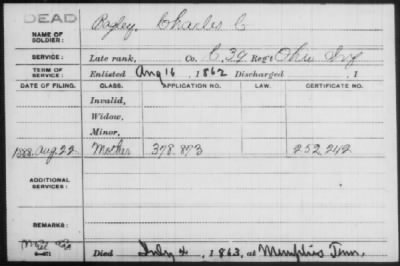 DEAD
NAME OF SOLDIER: Bagley, Charles C
SERVICE: Late rank, Co. C. 39 Reg't Ohio Inf
TERM OF SERVICE: Enlisted Aug 16, 1862 Discharged , 1
DATE OF FILING. CLASS. APPLICATION NO. LAW. CERTIFICATE NO.
Invalid,
Widow,
Minor,
1888. Aug 22 Mother 378.873 252.242
ADDITIONAL SERVICES:
REMARKS:
Died July 4, 1863, at Memphis Tenn.